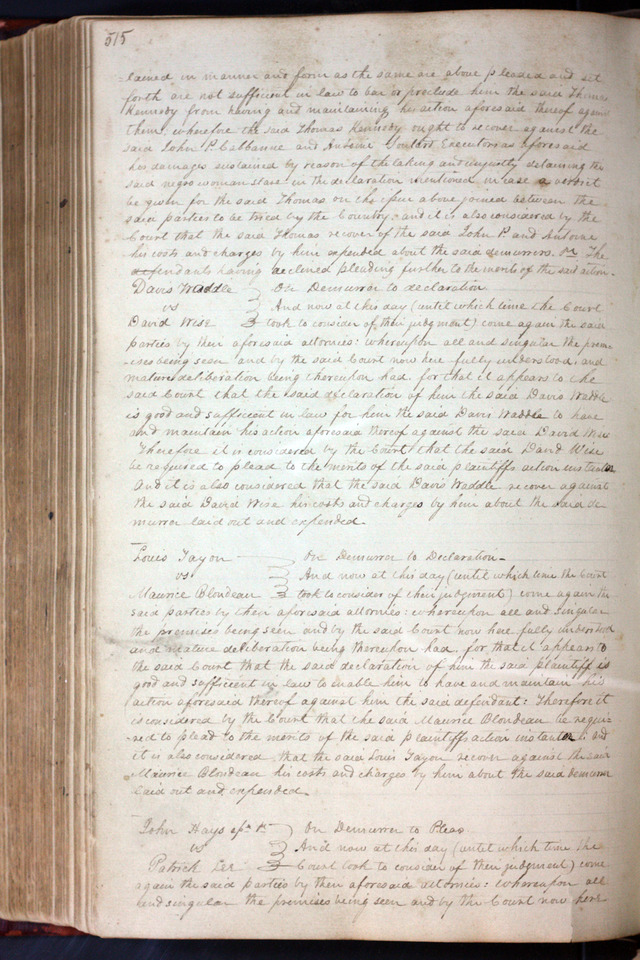 515
tained in manner and form as the same are above pleaded and set
forth are not sufficient in law to bar or preclude him the said Thomas
Kennedy from having and maintaining his action aforesaid thereof against
them, wherefore the said Thomas Kennedy ought to recover against the
said John P. Cabbanne and Antoine Soulard Executors as aforesaid
his damages sustained by reason of the taking and unjustly detaining the
said negro woman slave in the declaration mentioned in case a verdict
be given for the said Thomas on the issue above joined between the
said parties to be tried by the Country, and it is also considered by the
Court that the said Thomas recover of the said John P. and Antoine
his costs and charges by him expended about the said demurrers. The
defendants having declined pleading further to the merits of the said action.
Davis Waddle } On Demurrer to declaration
vs } And now at this day (until which time the Court
David Wise } took to consider of their judgment) come again the said
parties by their aforesaid attornies: whereupon all and singular the prem-
ises being seen and by the said Court now here fully understood, and
mature deliberation being thereupon had, for that it appears to the
said Court that the said declaration of him the said Davis Waddle
is good and sufficient in law for him the said Davis Waddle to have
and maintain his action aforesaid thereof against the said David Wise
Therefore it is considered by the Court that the said David Wise
be required to plead to the merits of the said plaintiffs action instanter
And it is also considered that the said Davis Waddle recover against
the said David Wise his costs and charges by him about the said de
murrer laid out and expended.
Louis Tayon } On Demurrer to Declaration
vs } And now at this day (until which time the Court
Maurice Blondeau } took to consider of their judgment) come again the
said parties by their aforesaid attornies: whereupon all and singular
the premises being seen and by the said Court now here fully understood
and mature deliberation being thereupon had, for that it appears to
the said Court that the said declaration of him the said plaintiff is
good and sufficient in law to enable him to have and maintain his
action aforesaid thereof against him the said defendant: Therefore it
is considered by the Court that the said Maurice Blondeau be requi-
red to plead to the merits of the said plaintiff action instanter: and
it is also considered that the said Louis Tayon recover against the said
Maurice Blondeau his costs and charges by him about the said demurrer
laid out and expended.
John Hays } On Demurrer to Pleas
vs } And now at this day (until which time the
Patrick Lee } Court took to consider of their judgment) come
again the said parties by their aforesaid attornies: whereupon all
and singular the premises being seen and by the Court now here